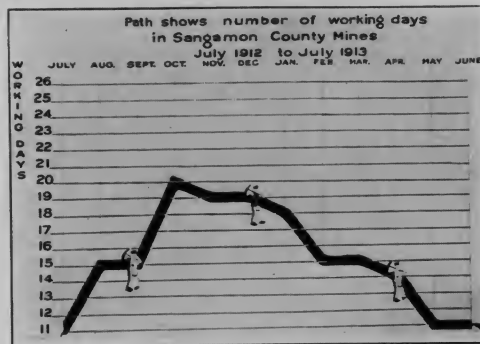 Path shows number of working days
in Sangamon County Mines
July 1912 to July 1913
WORKING DAYS
JULY AUG. SEPT. OCT. NOV. DEC. JAN. FEB. MAR. APR. MAY JUNE
26
25
24
23
22
21
20
19
18
17
16
15
14
13
12
11